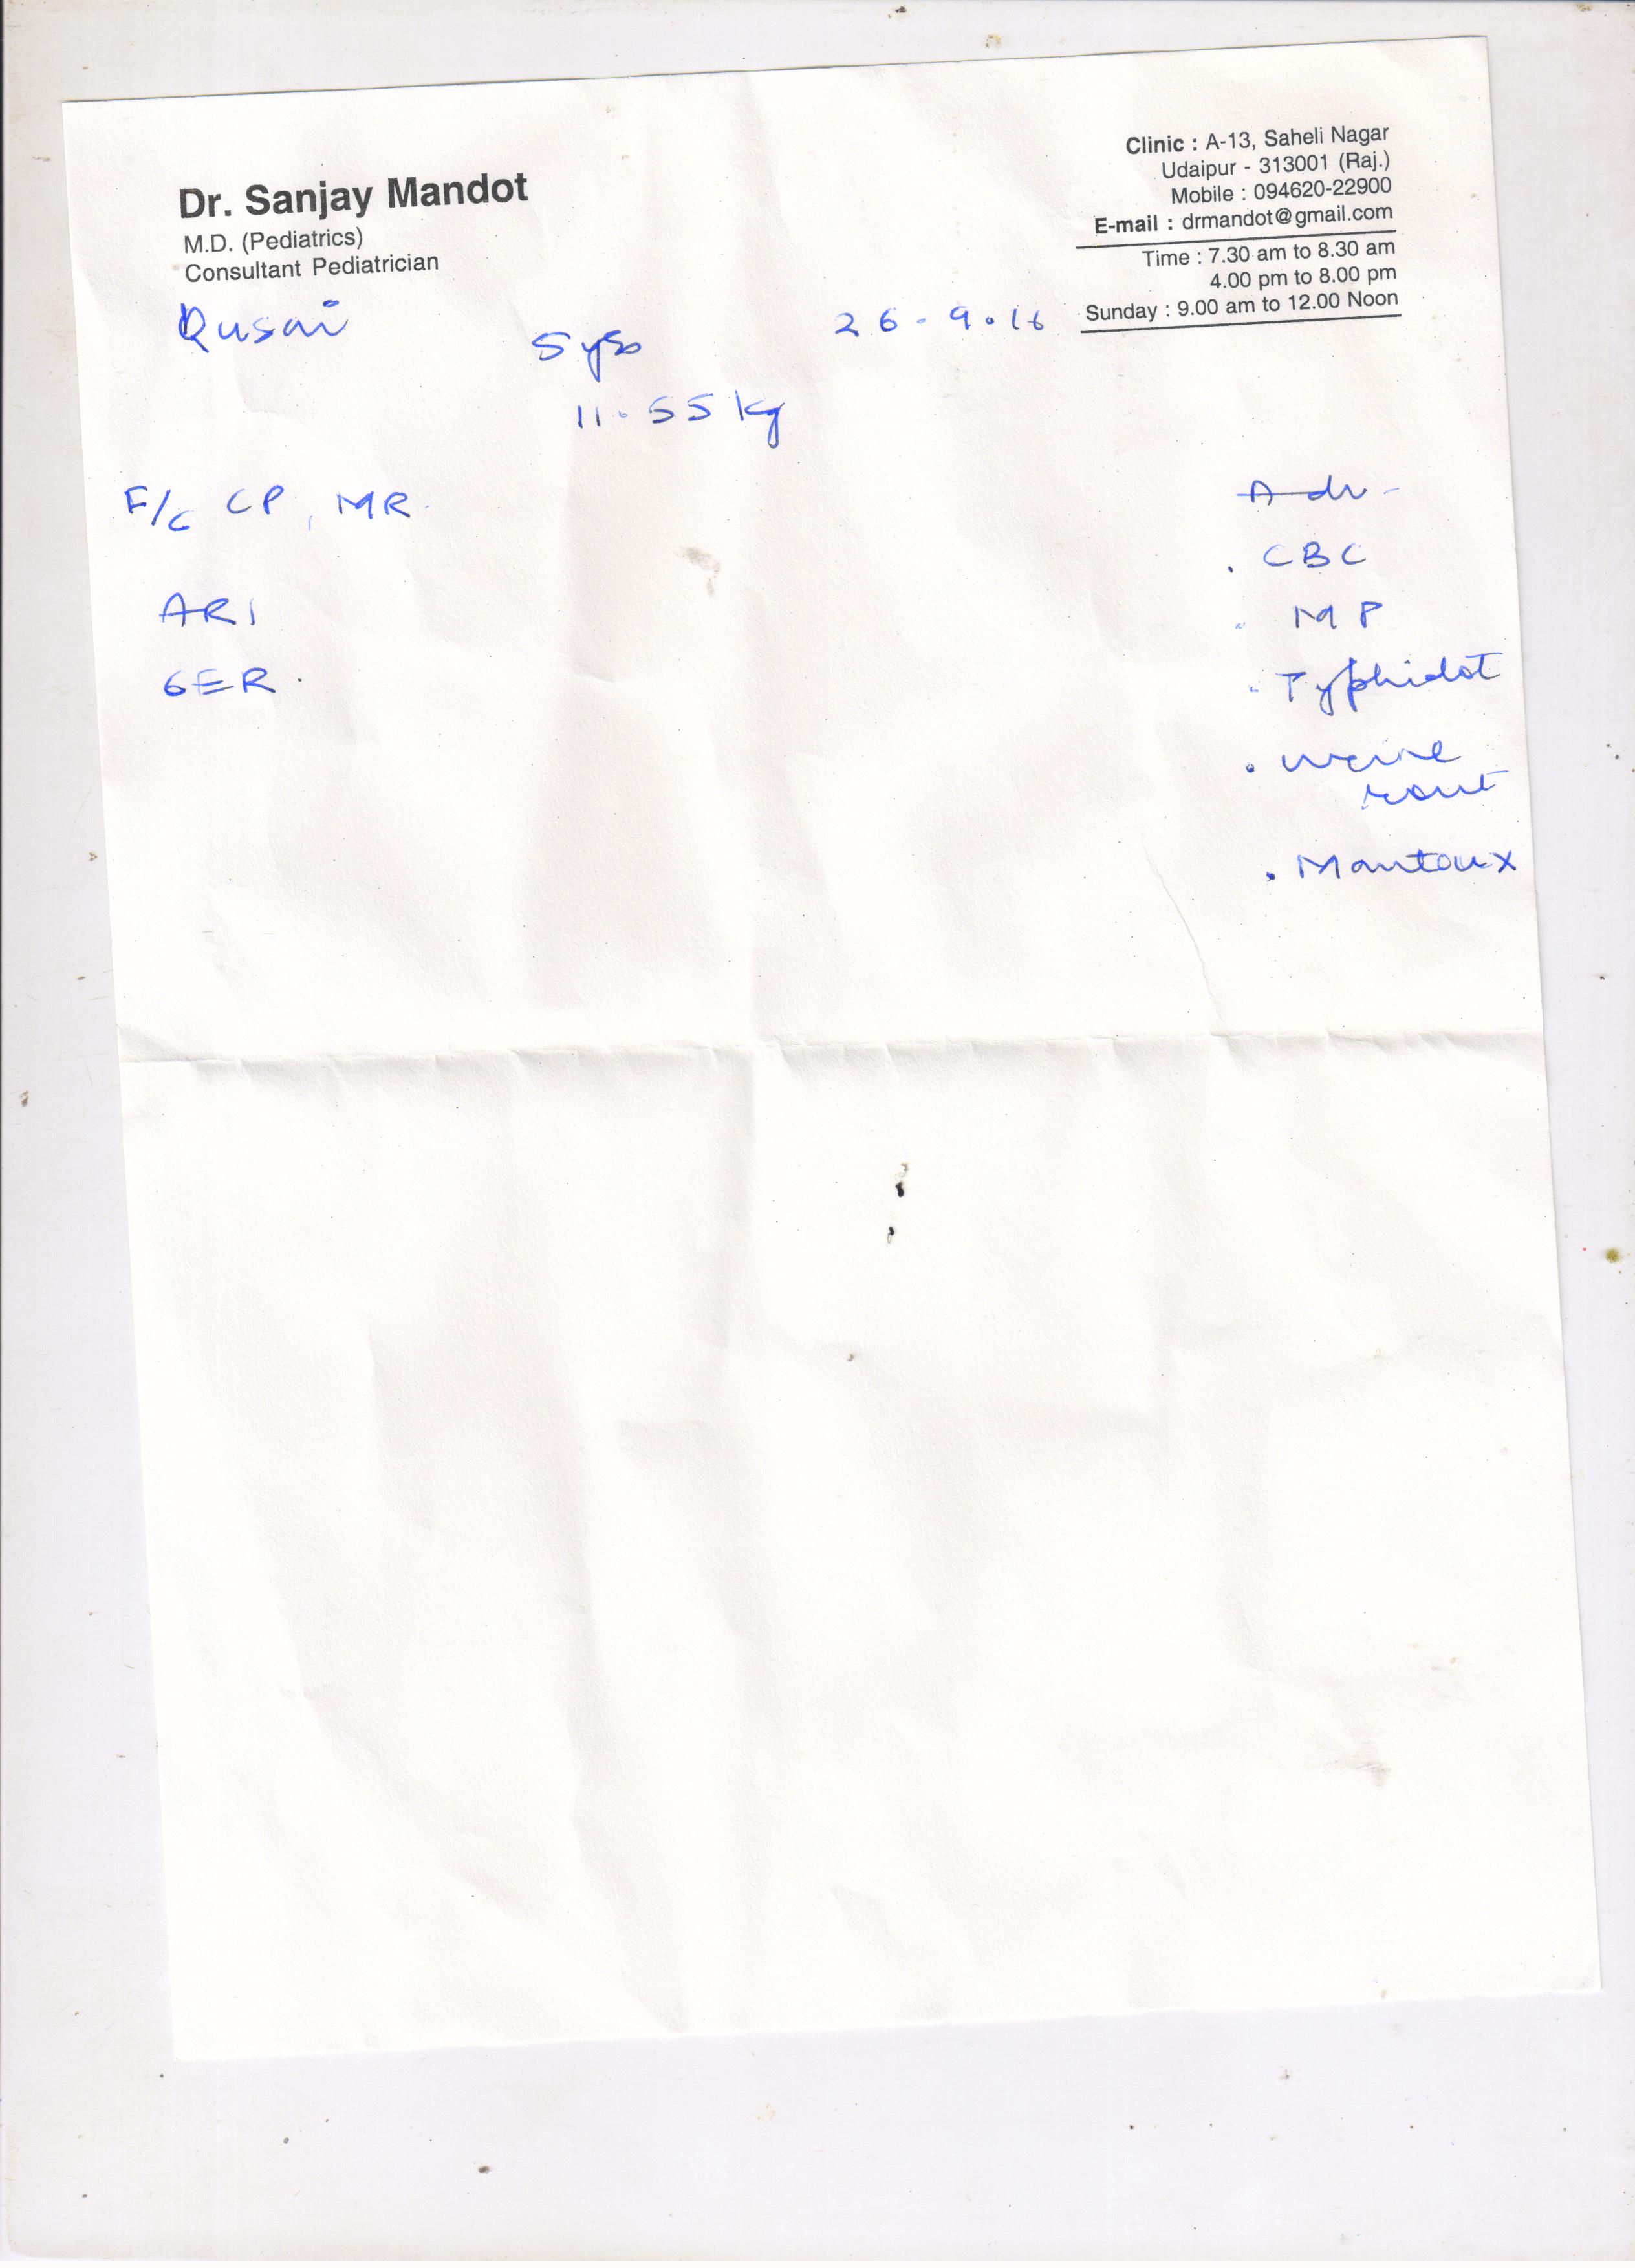 Dr. Sanjay Mandot
M.D. (Pediatrics)
Consultant Pediatrician
Clinic : A-13, Saheli Nagar
Udaipur - 313001 (Raj.)
Mobile : 094620-22900
E-mail : drmandot@gmail.com
Time : 7.30 am to 8.30 am
4.00 pm to 8.00 pm
Sunday : 9.00 am to 12.00 Noon
Qusai
26.9.16
11.55 kg
F/c CP, MR
ARI
GER.
Adv-
. CBC
. MP
. Typhidot
. urine
rout
. Mantoux